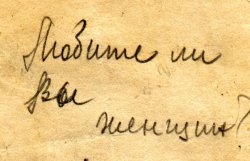 Любите ли
Вы
женщин?